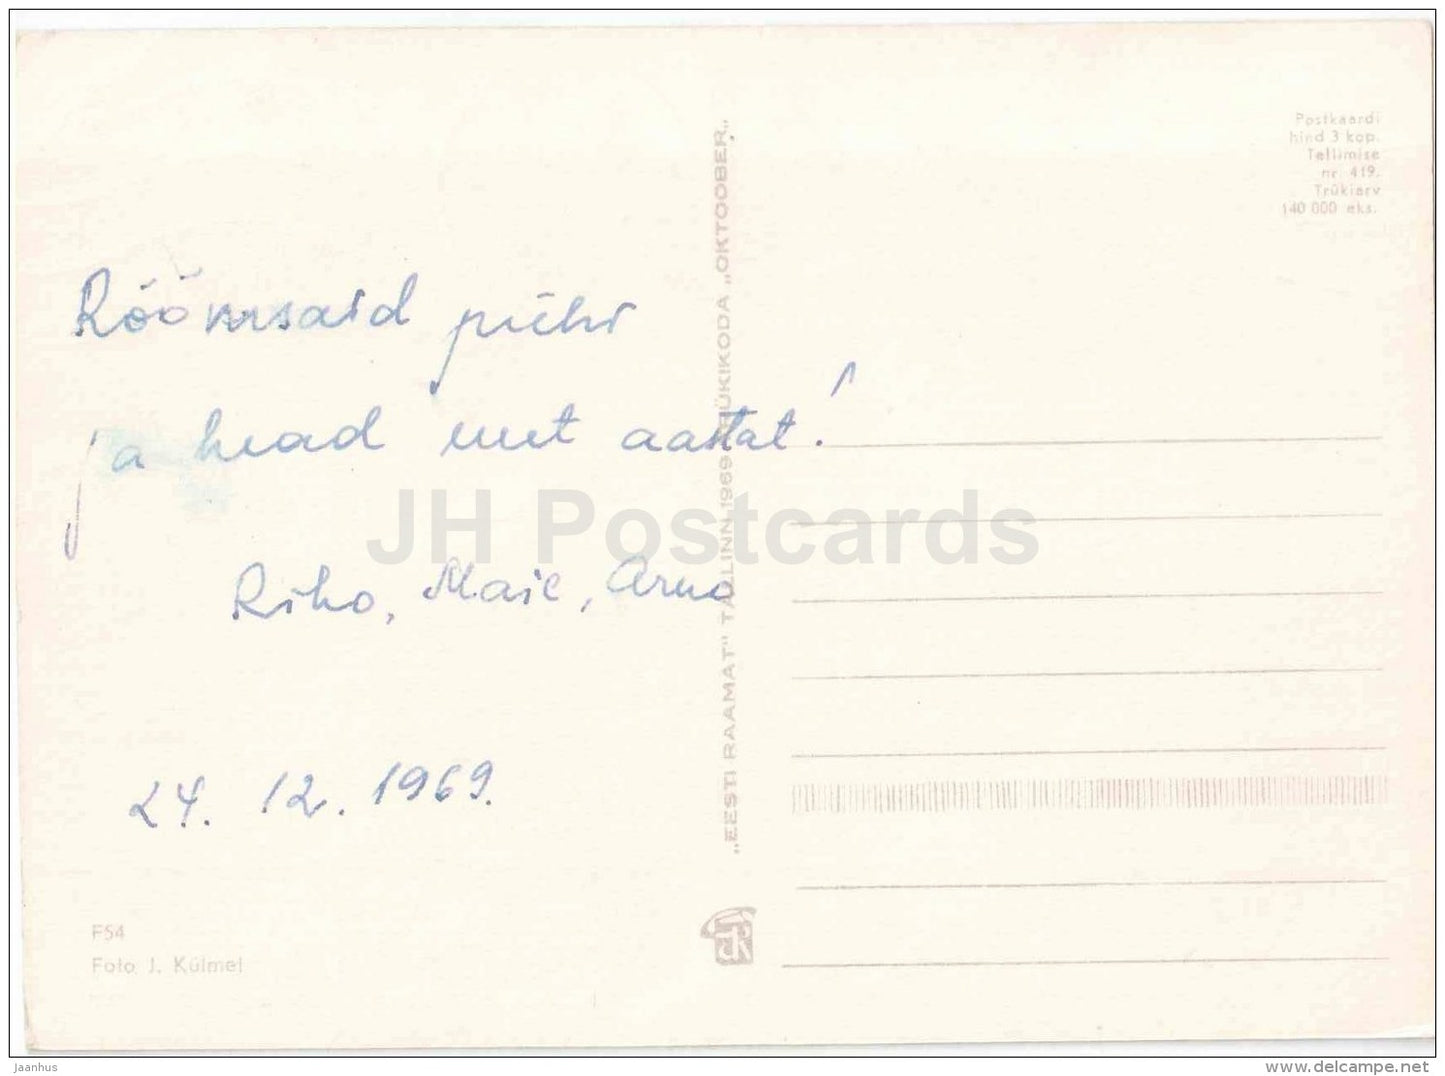 Postkaardi
hind 3 kop.
Tellimise
nr. 419.
Trükiarv
140 000 eks.
Rõõmsaid pühi
ja head uut aastat!
Riho, Maie, Arno
24. 12. 1969.
F54
Foto J. Külmet
„EESTI RAAMAT" TALLINN 1969 TRÜKIKODA „OKTOOBER„
JH Postcards
jaanhus
www.delcampe.net